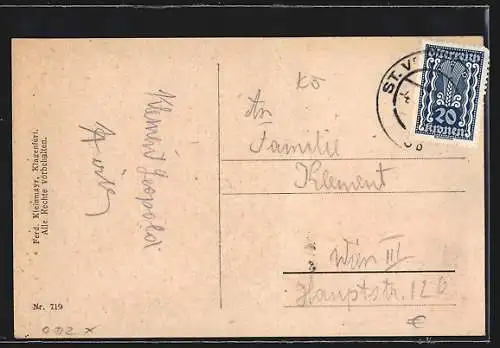 Ferd. Kleinmayr, Klagenfurt.
Alle Rechte vorbehalten.
Nr. 719
Klement Leopold
An
Familie
Klement
Wien III
Hauptstr. 120
€
ST. V
20
KRONEN